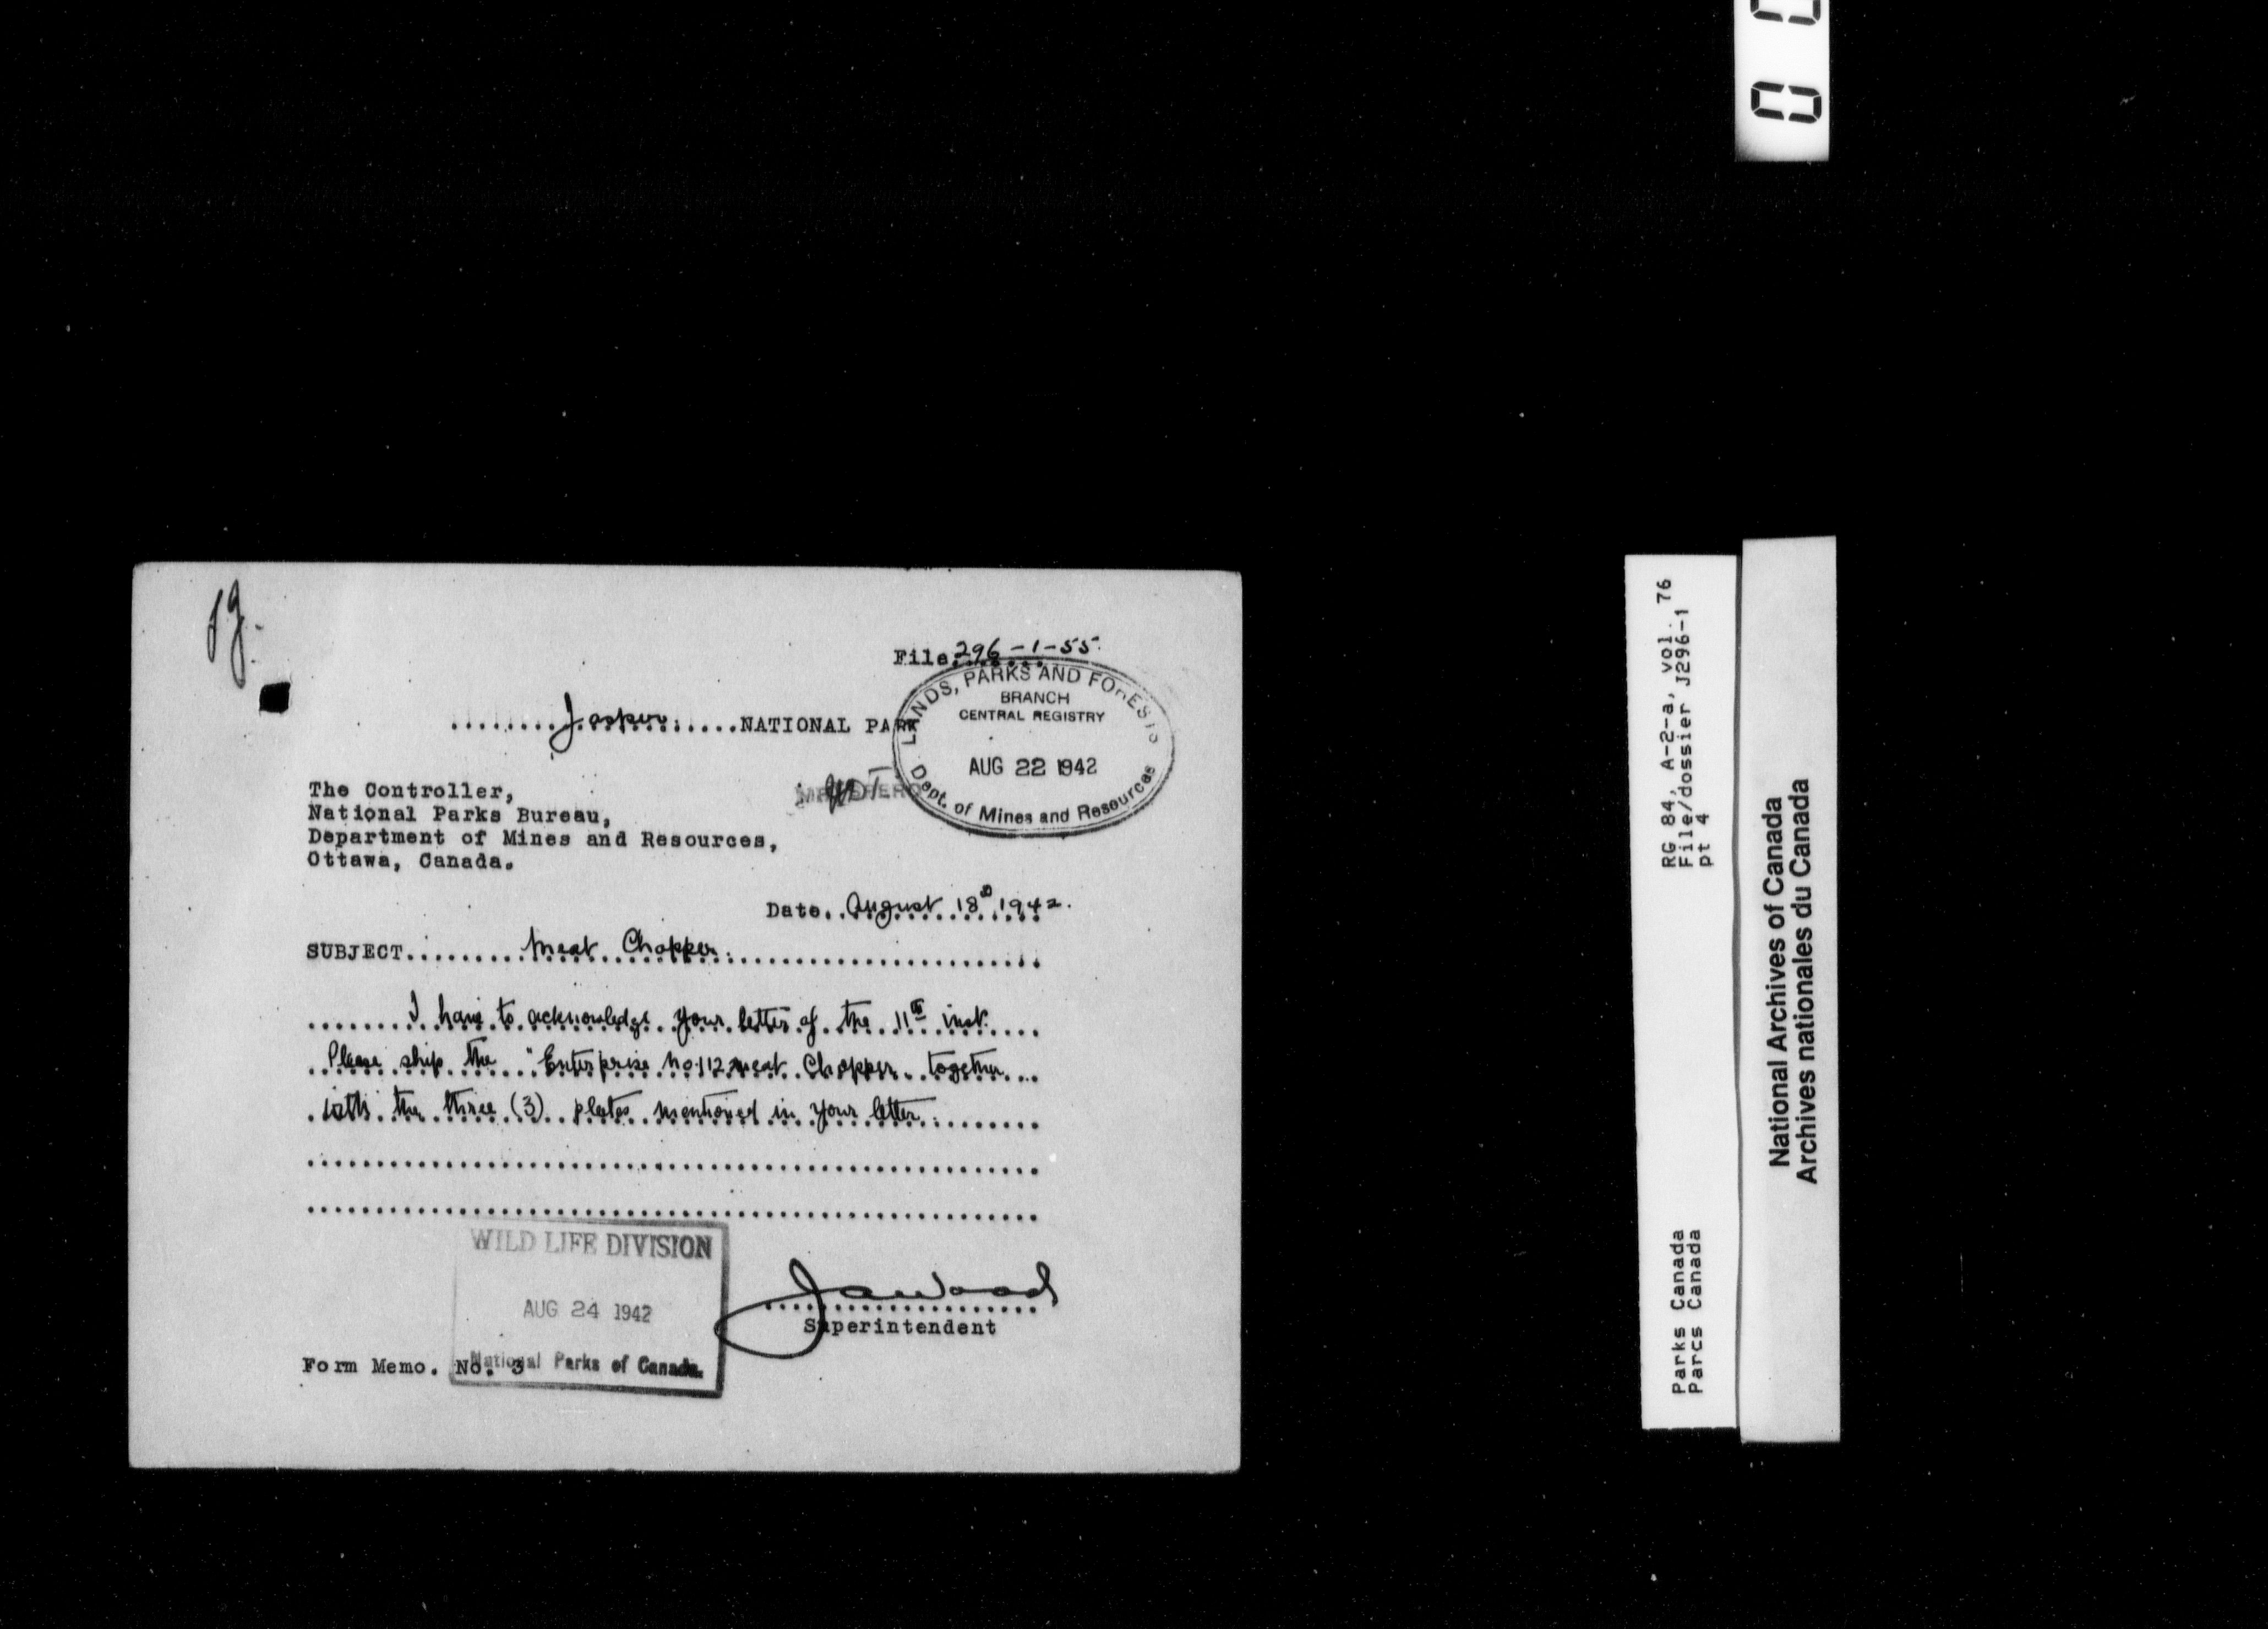 File 296-1-55.
LANDS, PARKS AND FORESTS
BRANCH
CENTRAL REGISTRY
AUG 22 1942
Dept. of Mines and Resources
........Jasper......NATIONAL PARK
The Controller,
National Parks Bureau,
Department of Mines and Resources,
Ottawa, Canada.
Date..August 18th 1942.
SUBJECT.........Meat Chopper.
I have to acknowledge your letter of the 11th inst.
Please ship the "Enterprise No. 112 meat Chopper together
with the three (3) plates mentioned in your letter.
WILD LIFE DIVISION
AUG 24 1942
National Parks of Canada.
JAWood
Superintendent
Form Memo. No. 3
RG 84, A-2-a, vol. 76
File/dossier J296-1
pt 4
Parks Canada
Parcs Canada
National Archives of Canada
Archives nationales du Canada